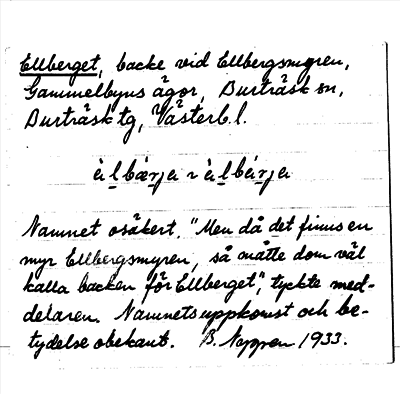 Ellberget, backe vid Ellbergsmyren,
Gammelbyns ägor, Burträsk sn,
Burträsk tg, Västerb. l.
Namnet osäkert. "Men då det finns en
myr Ellbergsmyren, så måtte dom väl
kalla backen för Ellberget", tyckte med-
delaren. Namnets uppkomst och be-
tydelse obekant. B. 1933.